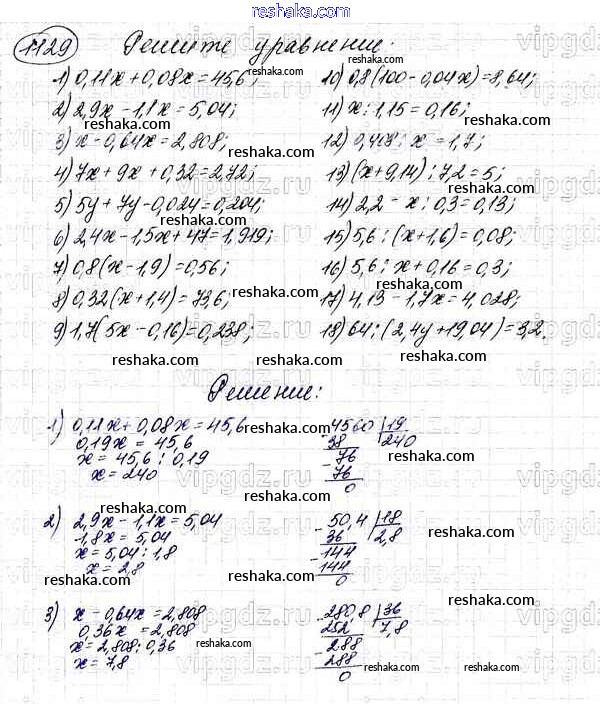 reshaka.com
1129 Решите уравнение:
1) 0,11x + 0,08x = 45,6;
2) 2,9x - 1,1x = 5,04;
3) x - 0,64x = 2,808;
4) 7x + 9x + 0,32 = 2,72;
5) 5y + 7y - 0,024 = 0,204;
6) 2,4x - 1,5x + 47 = 1,919;
7) 0,8(x - 1,9) = 0,56;
8) 0,32(x + 1,4) = 73,6;
9) 1,7(5x - 0,16) = 0,238;
10) 0,8(100 - 0,04x) = 8,64;
11) x : 1,15 = 0,16;
12) 0,408 : x = 1,7;
13) (x + 9,14) : 7,2 = 5;
14) 2,2 - x : 0,3 = 0,13;
15) 5,6 : (x + 1,6) = 0,08;
16) 5,6 : x + 0,16 = 0,3;
17) 4,13 - 1,7x = 4,028;
18) 64 : (2,4y + 19,04) = 3,2.
Решение:
1) 0,11x + 0,08x = 45,6
0,19x = 45,6
x = 45,6 : 0,19
x = 240
4560 19
38 240
76
76
0
2) 2,9x - 1,1x = 5,04
1,8x = 5,04
x = 5,04 : 1,8
x = 2,8
50,4 18
36 2,8
144
144
0
3) x - 0,64x = 2,808
0,36x = 2,808
x = 2,808 : 0,36
x = 7,8
280,8 36
252 7,8
288
288
0